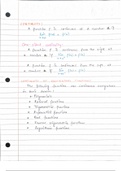 CONTINUITY:
• A function f is continuous at a number a if
lim f(x) = f(a)
x→a
One sided continuity
• A function f is continuous from the right at
number a if lim f(x) = f(a)
x→a⁺
• A function f is continuous from the left at
number a if lim f(x) = f(a)
x→a⁻
The following functions are continuous everywhere
in their domain:
• Polynomial
• Rational function
• Trigonometric function
• Exponential function
• Root function
• Inverse trigonometric function
• Logarithmic function